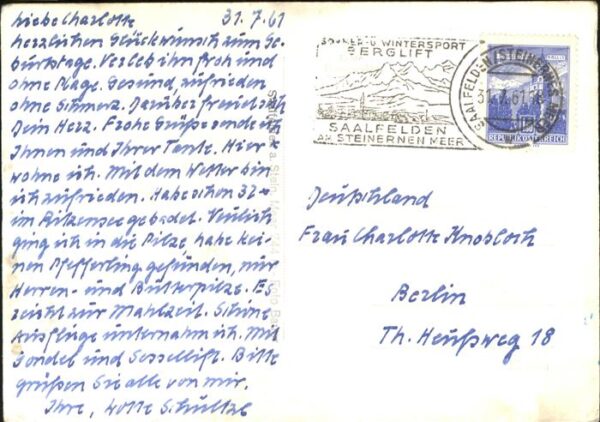 Liebe Charlotte 31.7.61
herzlichen Glückwunsch zum Ge-
burtstage. Verleb ihn froh und
ohne Plage. Gesund, zufrieden
ohne Schmerz. Darüber freue sich
Dein Herz. Frohe Grüße sende ich
Ihnen und Ihrer Tante. Hier
wohne ich. Mit dem Wetter bin
ich zufrieden. Habe schon 32
im Ritzensee gebadet. Neulich
ging ich in die Pilze, habe kei-
nen Pfefferling gefunden, nur
Herren- und Butterpilze. Es
reicht zur Mahlzeit. Schöne
Ausflüge unternahm ich. Mit
Gondel und Sessellift. Bitte
grüßen Sie alle von mir.
Ihre, Lotte Schultze
SOMMER-U. WINTERSPORT
BERGLIFT
SAALFELDEN
AM STEINERNEN MEER
SAALFELDEN STEINERNES MEER
REPUBLIK ÖSTERREICH
Deutschland
Frau Charlotte Knobloch
Berlin
Th. Heußweg 18